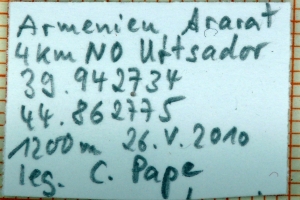 Armenien Ararat
4km NO Uttsador
39.942734
44.862775
1200m 26.V.2010
leg. C. Pape